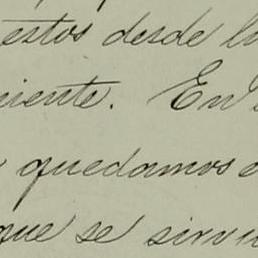 estos desde l
niente. En
quedamos a
que se sirvi